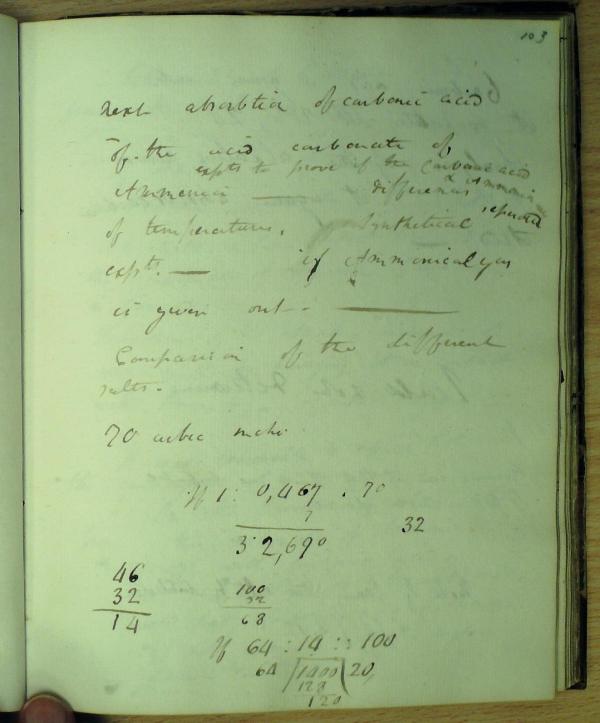 103
Next absorbtion of carbonic acid
of the acid carbonate of
expts to prove if the Carbonic acid
Ammonia — differences & Ammonia
of temperatures. Synthetical separated
expts. — if Ammoniacal gas
is given out. —
Comparison of the different
salts.
70 cubic inches
If 1 : 0,467 . 70
7
32
32,690
46
32
14
100
32
68
If 64 : 14 :: 100
64 1400 20,
128
120